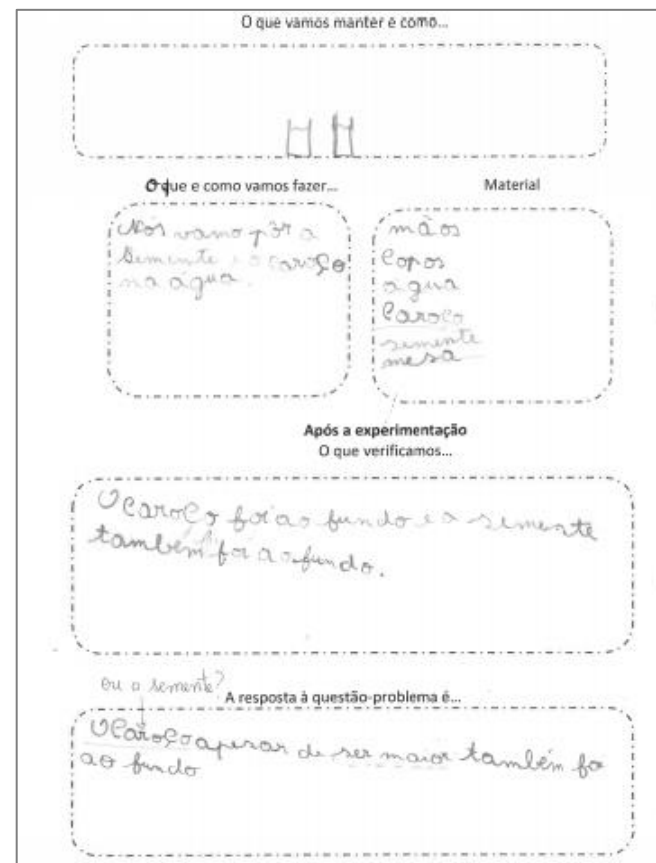 O que vamos manter e como...
O que e como vamos fazer...
Nós vamo pôr a
semente e o caroço
na água.
Material
mãos
Copos
agua
Caroço
semente
mesa
Após a experimentação
O que verificamos...
O Caroço foi ao fundo e a semente
também foi ao fundo.
ou a semente?
A resposta à questão-problema é...
O Caroço apesar de ser maior também fo
ao fundo